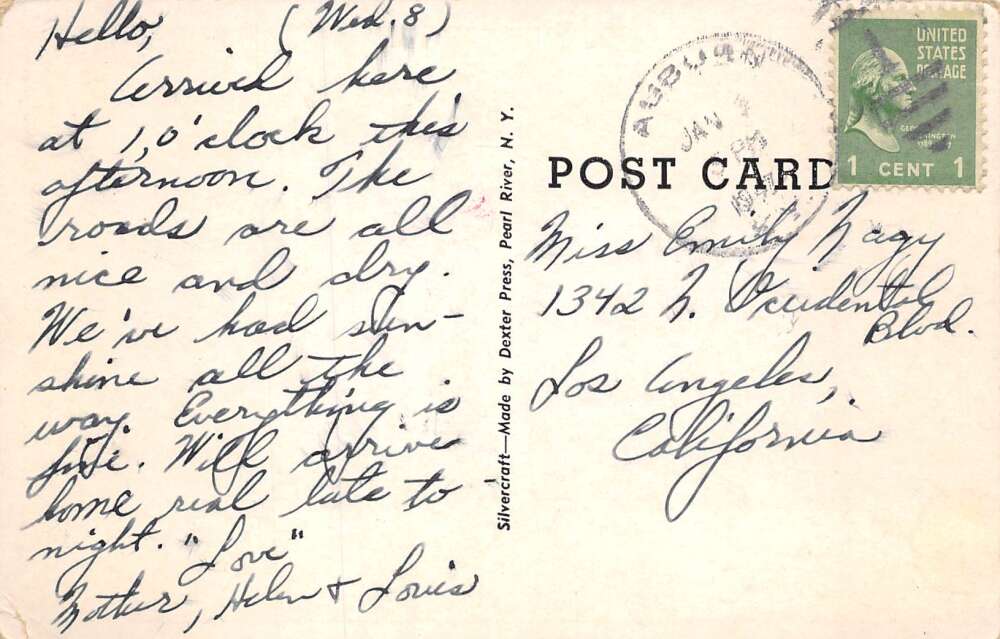 Hello, (Wed. 8)
Arrived here
at 1, o'clock this
afternoon. The
roads are all
nice and dry.
We've had sun-
shine all the
way. Everything is
fine. Will arrive
home real late to
night. "Love"
Mother, Helen & Louis
Silvercraft—Made by Dexter Press, Pearl River, N. Y.
POST CARD
AUBURN
JAN
PM
UNITED
STATES
POSTAGE
1 CENT 1
Miss Emily Nagy
1342 N. Occidental
Blvd.
Los Angeles,
California